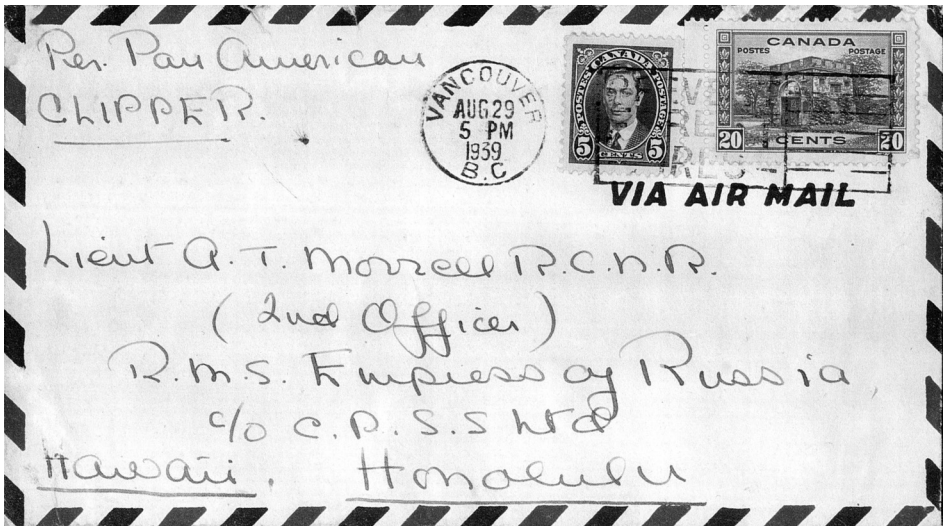 Per. Pan American
CLIPPER.
VANCOUVER
AUG 29
5 PM
1939
B.C
POSTES CANADA POSTAGE
5 CENTS 5
CANADA
POSTES POSTAGE
20 CENTS 20
VIA AIR MAIL
Lieut A. T. Morrell R.C.N.R.
(2nd Officer)
R.M.S. Empress of Russia
c/o C.P.S.S Ltd
Hawaii. Honolulu